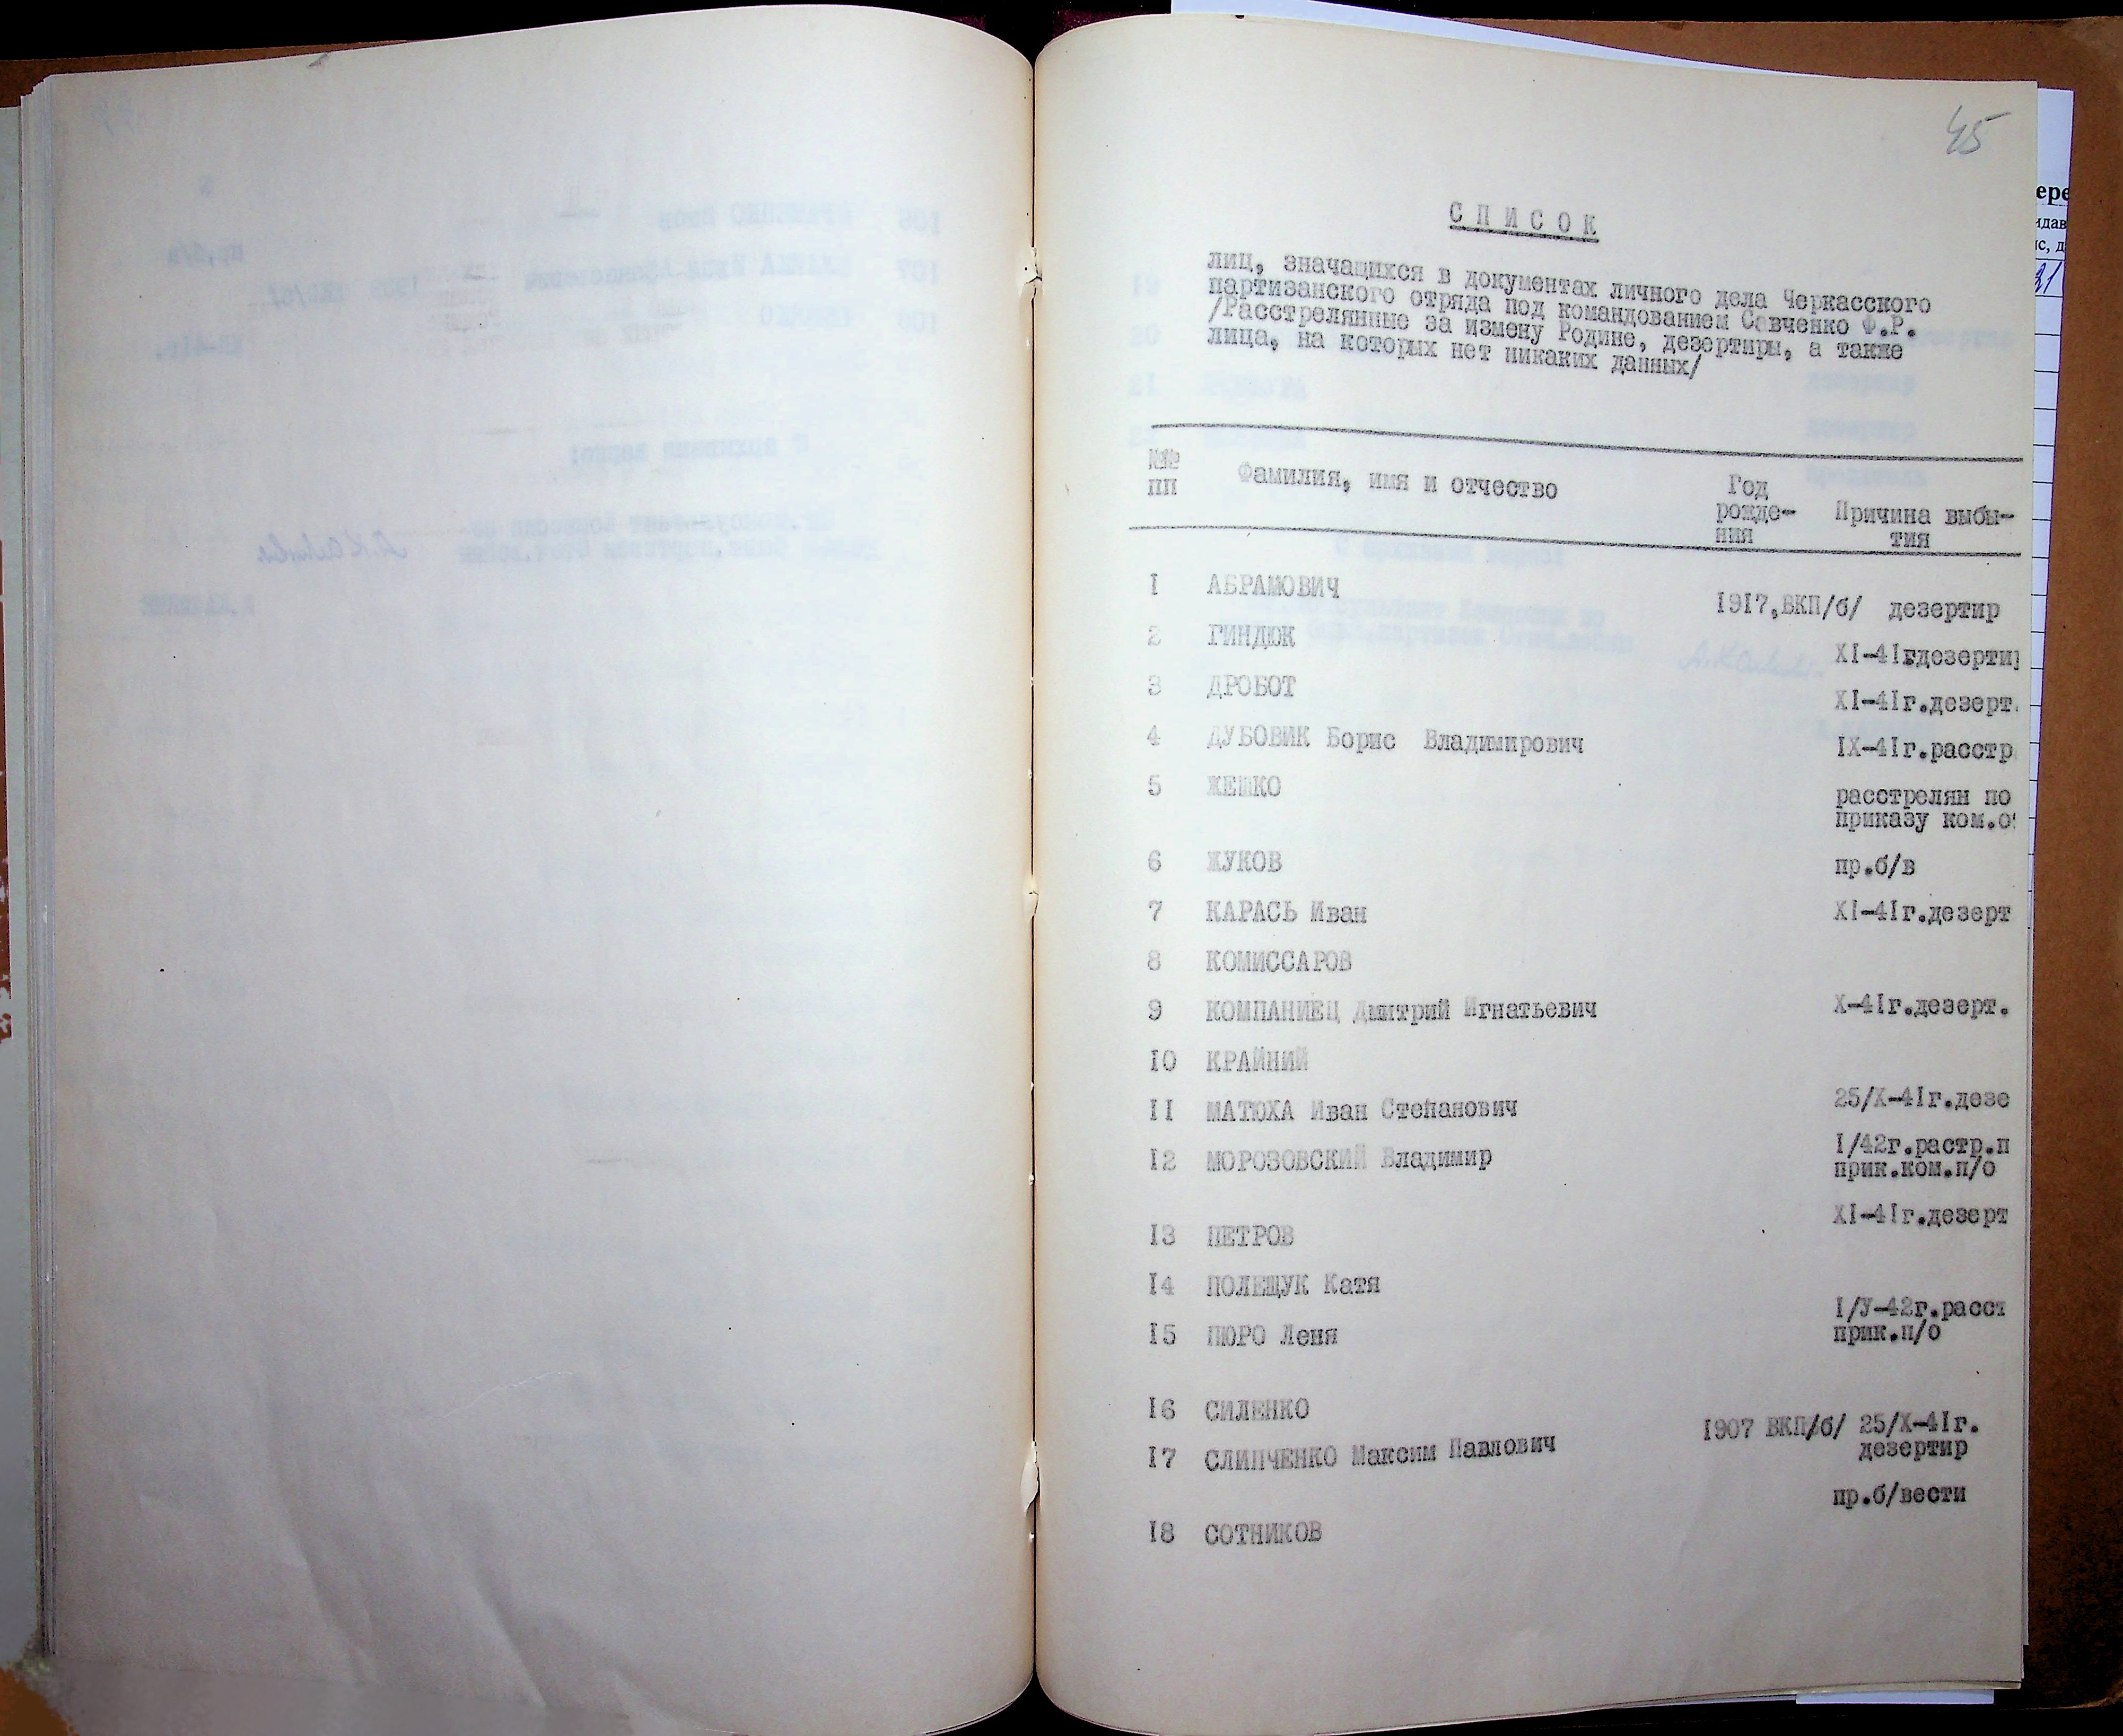 45
С П И С О К
лиц, значащихся в документах личного дела Черкасского
партизанского отряда под командованием Савченко Ф.Р.
/Расстрелянные за измену Родине, дезертиры, а также
лица, на которых нет никаких данных/
№№ пп Фамилия, имя и отчество Год рожде- ния Причина выбы- тия
1 АБРАМОВИЧ 1917,ВКП/б/ дезертир
2 ГИНДЮК XI-41гдезертир
3 ДРОБОТ XI-41г.дезерт.
4 ДУБОВИК Борис Владимирович IX-41г.расстр
5 ЖЕШКО расстрелян по
приказу ком.о
6 ЖУКОВ пр.б/в
7 КАРАСЬ Иван XI-41г.дезерт
8 КОМИССАРОВ
9 КОМПАНИЕЦ Дмитрий Игнатьевич X-41г.дезерт.
10 КРАЙНИЙ
11 МАТЮХА Иван Степанович 25/X-41г.дезе
12 МОРОЗОВСКИЙ Владимир 1/42г.растр.п
прик.ком.п/о
13 ПЕТРОВ XI-41г.дезерт
14 ПОЛЕЩУК Катя
15 ПЮРО Леня 1/У-42г.расст
прик.п/о
16 СИЛЕНКО
17 СЛИПЧЕНКО Максим Павлович 1907 ВКП/б/ 25/X-41г.
дезертир
18 СОТНИКОВ пр.б/вести
ере
идав
ис, д
21